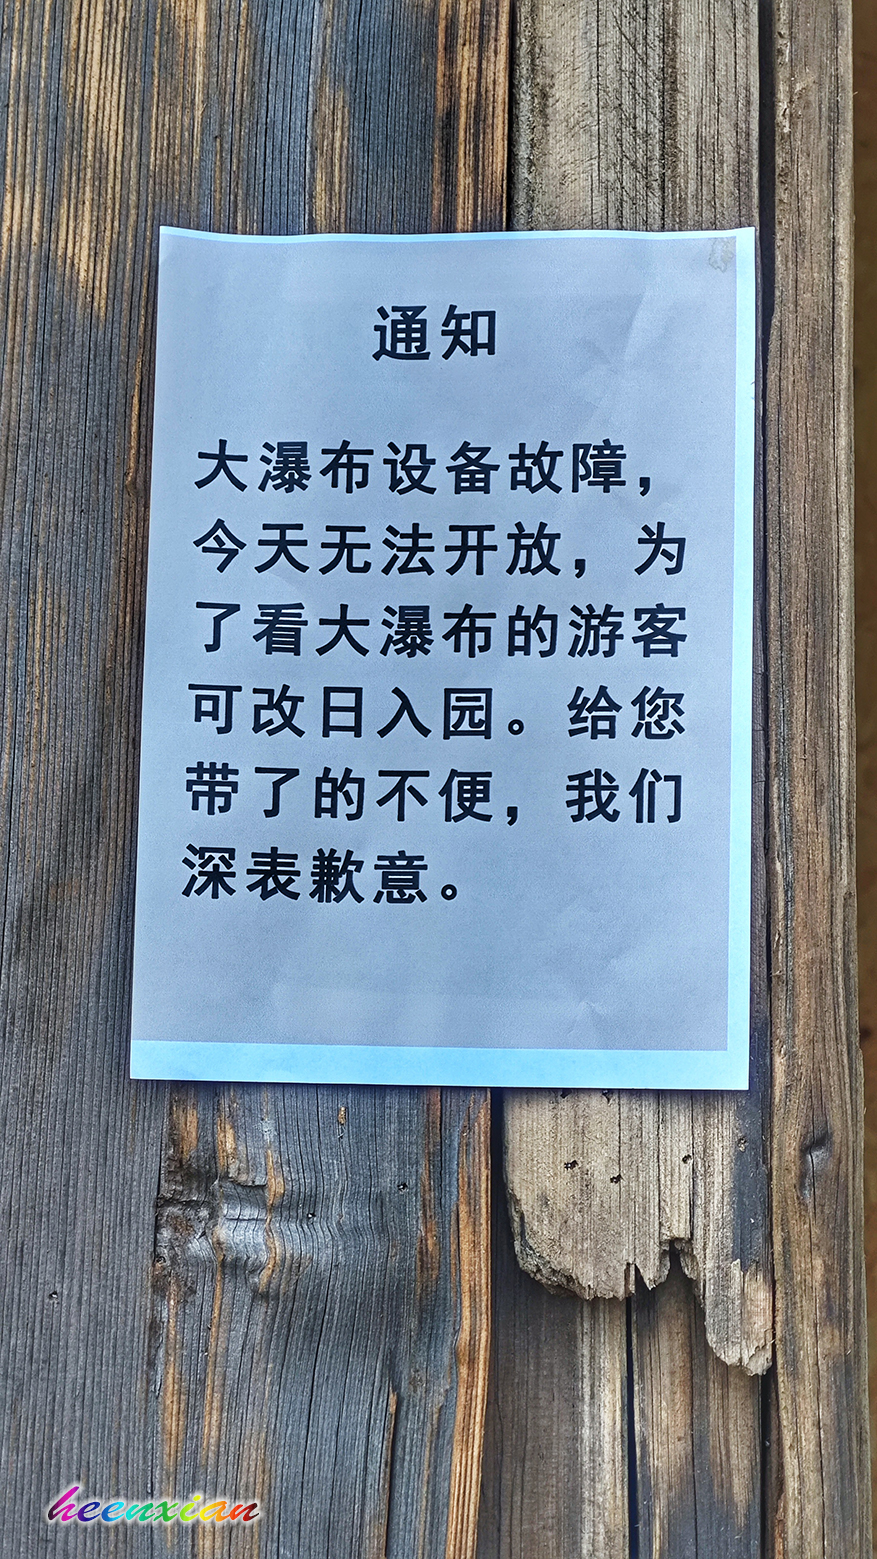 通知
大瀑布设备故障，
今天无法开放，为
了看大瀑布的游客
可改日入园。给您
带了的不便，我们
深表歉意。
heenxian